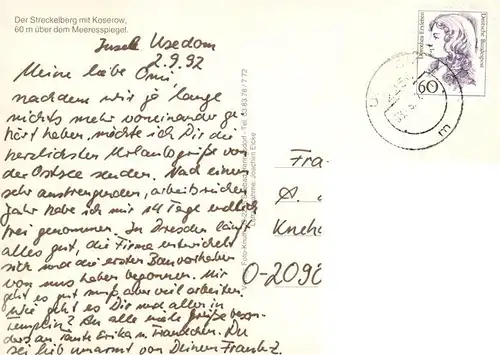 Der Streckelberg mit Koserow,
60 m über dem Meeresspiegel.
Insel Usedom
2.9.92
Meine liebe Omi,
nachdem wir ja lange
nichts mehr voneinander ge-
hört haben, möchte ich Dir die
herzlichsten Urlaubsgrüße von
der Ostsee senden. Nach einem
sehr anstrengenden, arbeitsreichen
Jahr habe ich mir 14 Tage endlich
frei genommen. In Dresden läuft
alles gut, die Firma entwickelt
sich und die ersten Bauvorhaben
von uns haben begonnen. Mir
geht es gut, muß aber viel arbeiten.
Wie geht es Dir und allen in
Templin? An alle viele Grüße beson-
ders an Tante Erika u. Fränzchen. Du
sei lieb umarmt von Deinem
Joachim Eicke
Dorothea Erxleben
Deutsche Bundespost
60
Fra
A.
Knehe
O-2090